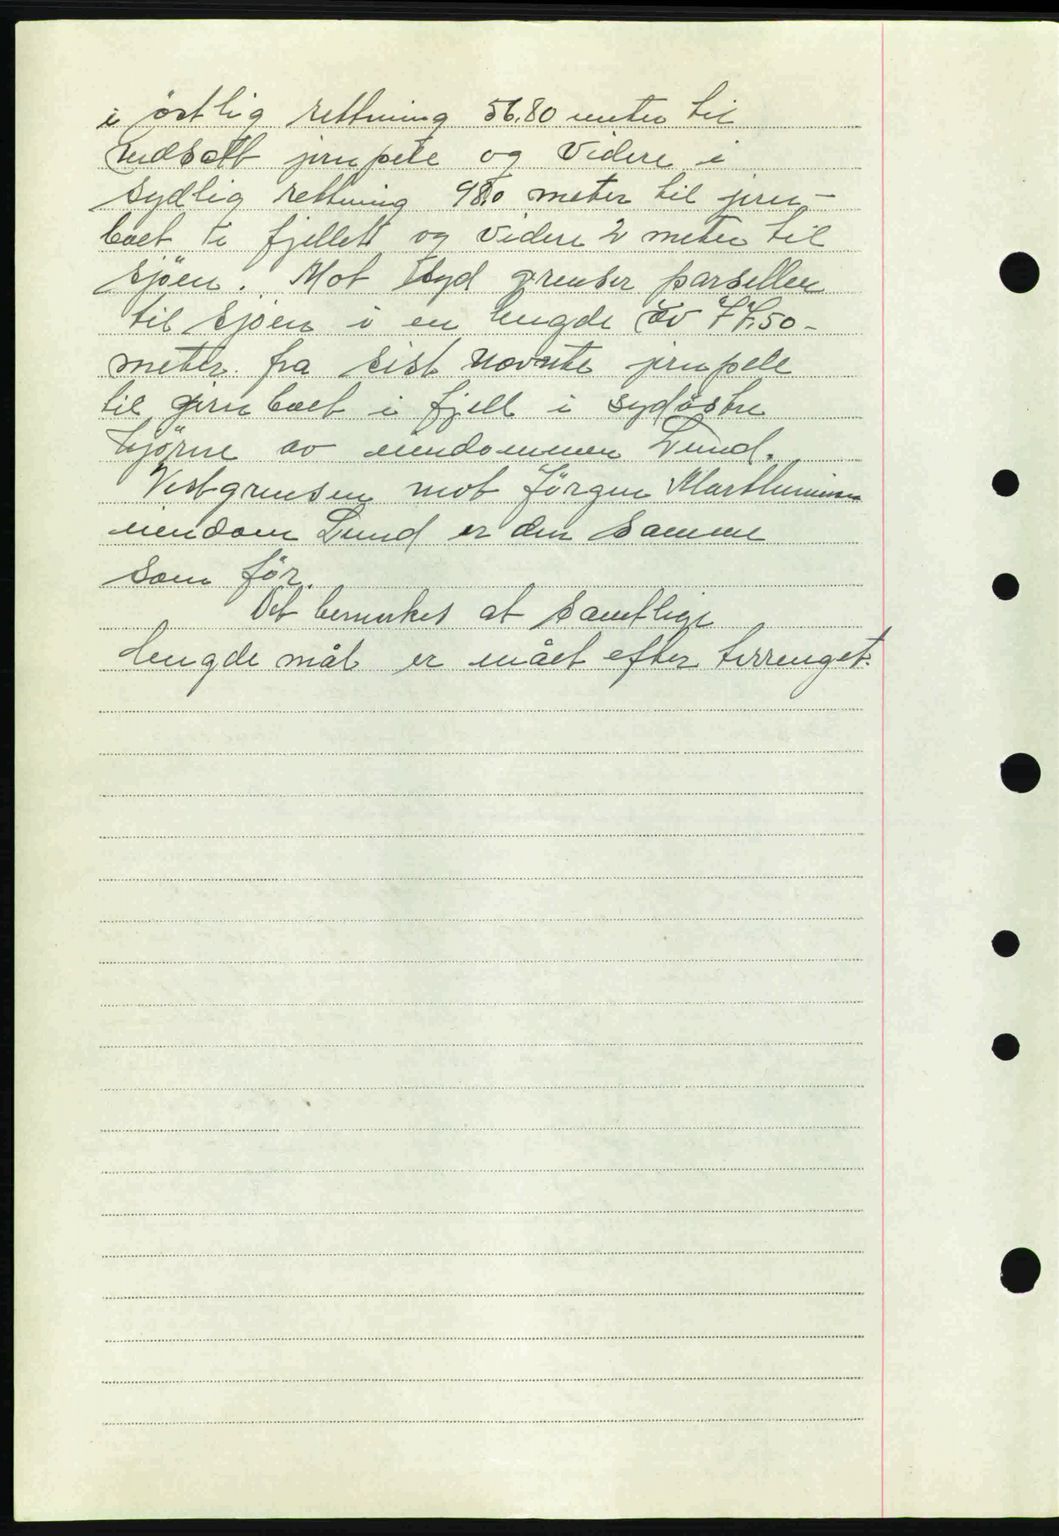 i östlig rettning 56,80 meter til
nedsatt jernpele og videre i
sydlig rettning 98,0 meter til jern-
bolt i fjellet og videre 2 meter til
sjöen. Mot syd grenser parsellen
til sjöen i en lengde av 77,50-
meter fra sist nevnte jernpele
til jernbolt i fjell i sydöstre
hjörne av eiendommen Lund.
Vestgrensen mot Jörgen
eiendom Lund er den samme
som för.
Det bemerkes at samtlige
lengde mål er målt efter terrenget.